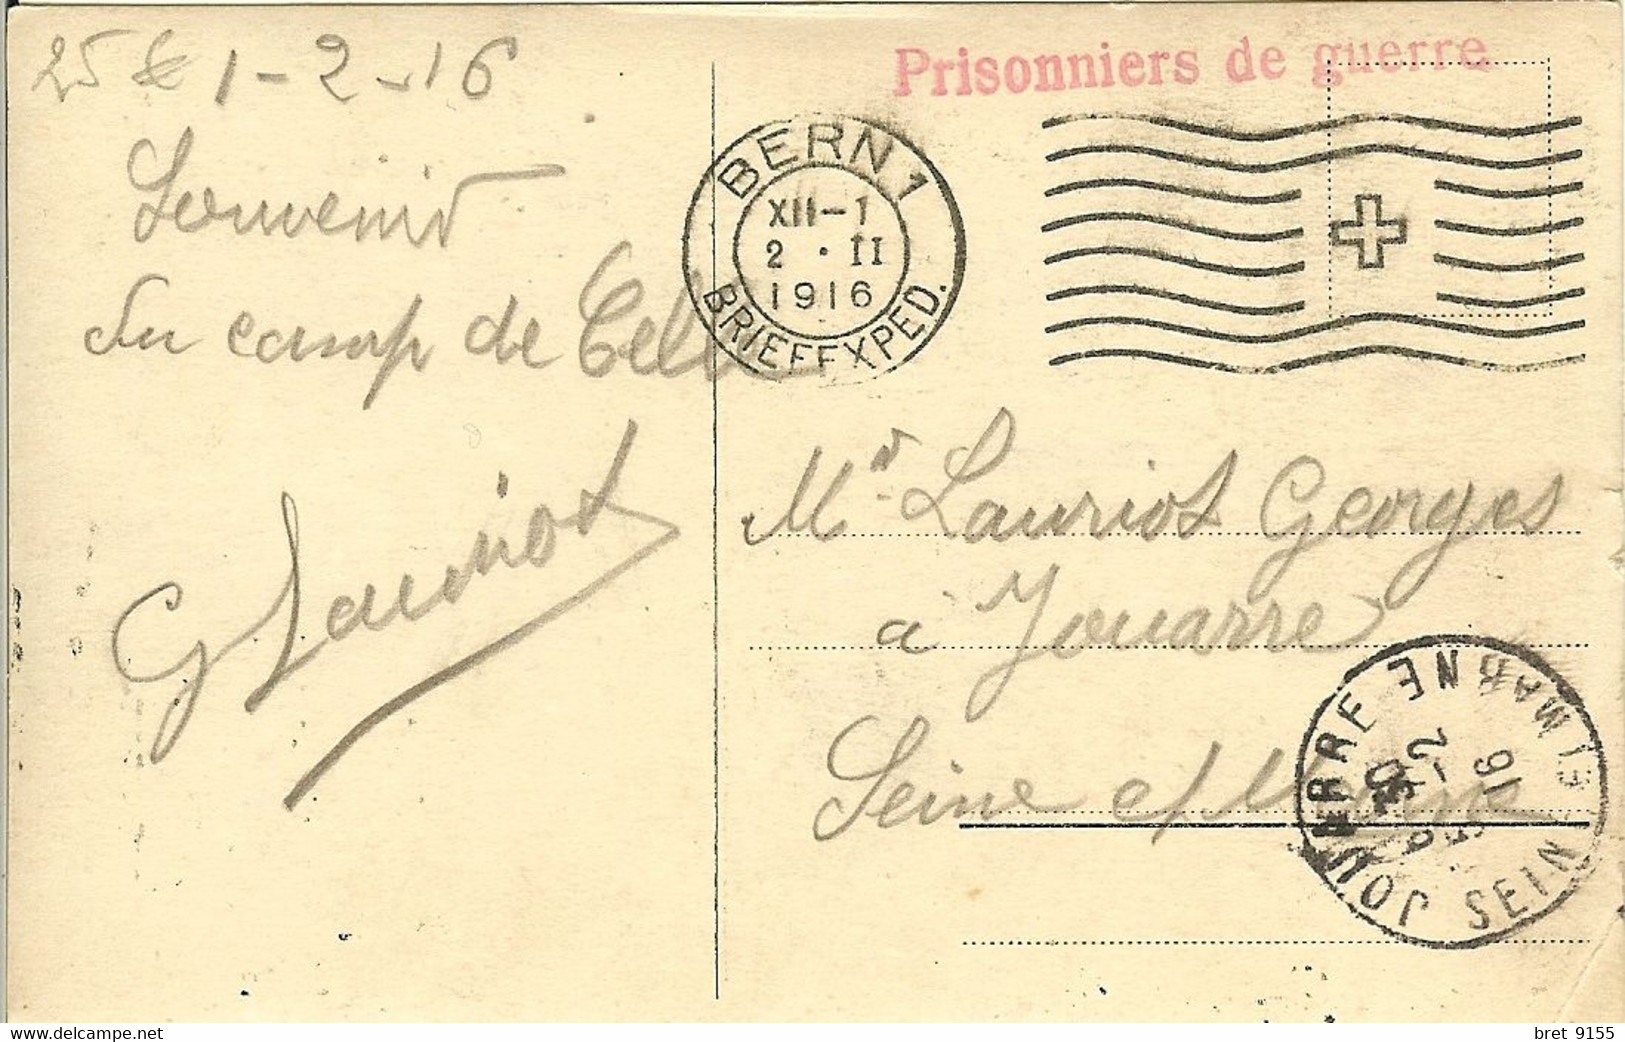 25 1-2-16
Souvenir
du camp de Celle
G Lauriot
Prisonniers de guerre
BERN 1
XII-1
2 · II
1916
BRIEFEXPED.
Mr Lauriot Georges
a Jouarre
Seine et Marne
JOUARRE
SEINE ET MARNE
5-2
16
bret 9155